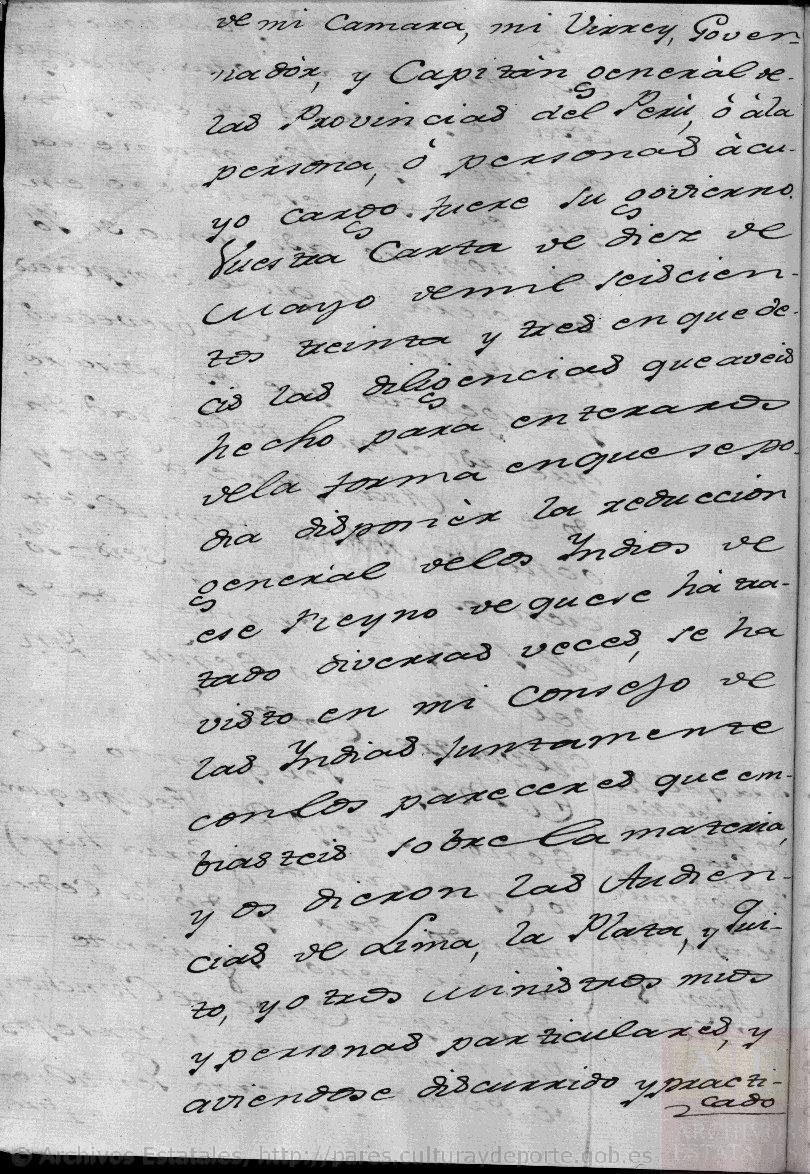 de mi Camara, mi Virrey, Gover-
nadór, y Capitán generàl de-
las Provincias del Perù, ò àla
persona, ò personas àcu-
yo cargo fuere su govierno.
Vuestra Carta de diez de
Mayo demil seiscien-
tos treinta y tres enque de-
cis las diligencias que aveis
hecho para enteraros
dela forma enque se po-
dia disponèr la reduccion
generàl delos Yndios de
ese Reyno de quese hà tra-
tado diversas veces, se ha
visto en mi Consejo de
las Yndias juntamente
conlos pareceres que em-
biasteis sobre la materia,
y os dieron las Audièn-
cias de Lima, la Plata, y Qui-
to, y otros Ministros mios
y personas particulares, y
aviendose discurrido y practi-
cado
© Archivos Estatales, http://pares.culturaydeporte.gob.es